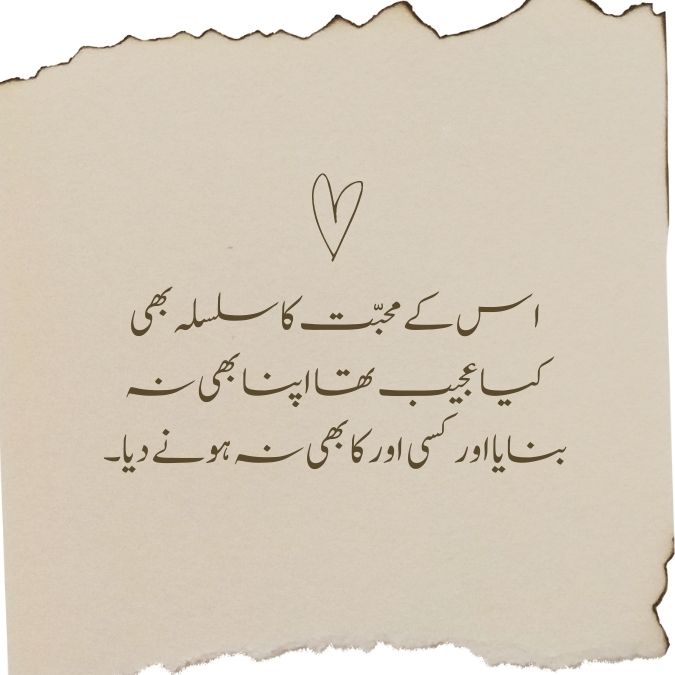 اس کے محبّت کا سلسلہ بھی
کیا عجیب تھا اپنا بھی نہ
بنایا اور کسی اور کا بھی نہ ہونے دیا۔